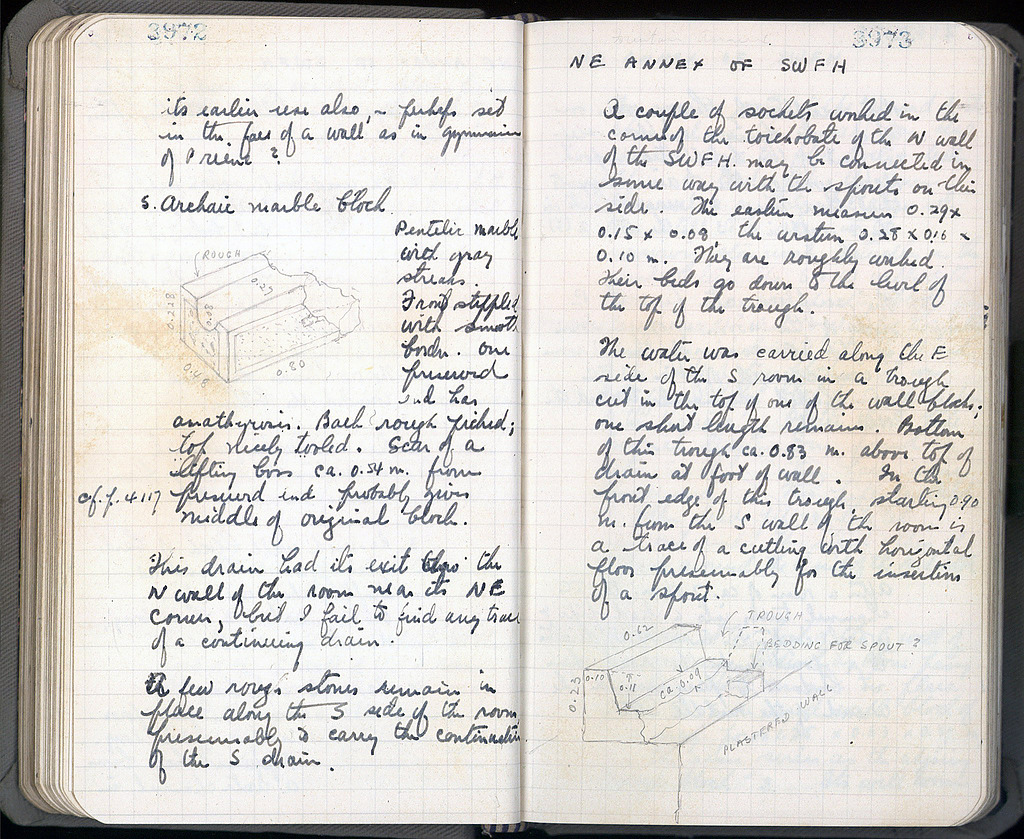 3972
its earlier use also, – perhaps set
in the face of a wall as in gymnasium
of Priene ?
5. Archaic marble block
Pentelic marble
with gray
streaks.
Front stippled
with smooth
border. One
preserved
end has
anathyrosis. Back rough picked;
top nicely tooled. Scar of a
lifting boss ca. 0.54 m. from
cf. p. 4117 preserved end probably gives
middle of original block.
ROUGH
0.27
0.228
0.48
0.80
This drain had its exit thro the
N wall of the room near its NE
corner, but I fail to find any trace
of a continuing drain.
A few rough stones remain in
place along the S side of the room
presumably to carry the continuation
of the S drain.
3973
NE ANNEX OF SWFH
A couple of sockets worked in the
corner of the toichobate of the N wall
of the SWFH. may be connected in
some way with the spouts on this
side. The eastern measures 0.29 x
0.15 x 0.08, the western 0.28 x 0.16 x
0.10 m. They are roughly worked.
Their beds go down to the level of
the top of the trough.
The water was carried along the E
side of the S room in a trough
cut in the top of one of the wall blocks;
one short length remains. Bottom
of this trough ca. 0.83 m. above top of
drain at foot of wall. In the
front edge of this trough, starting 0.90
m. from the S wall of the room is
a trace of a cutting with horizontal
floor presumably for the insertion
of a spout.
TROUGH
BEDDING FOR SPOUT ?
0.62
0.10
0.11
ca. 0.09
0.23
PLASTERED WALL